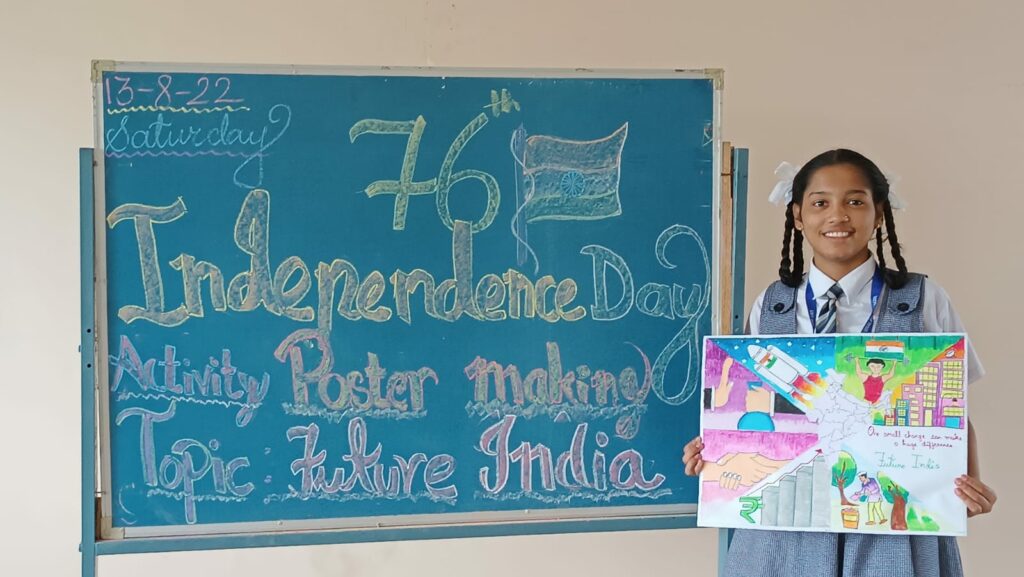 13-8-22
Saturday
76th
Independence Day
Activity Poster making
Topic: Future India
One small change can make
a huge difference
Future India